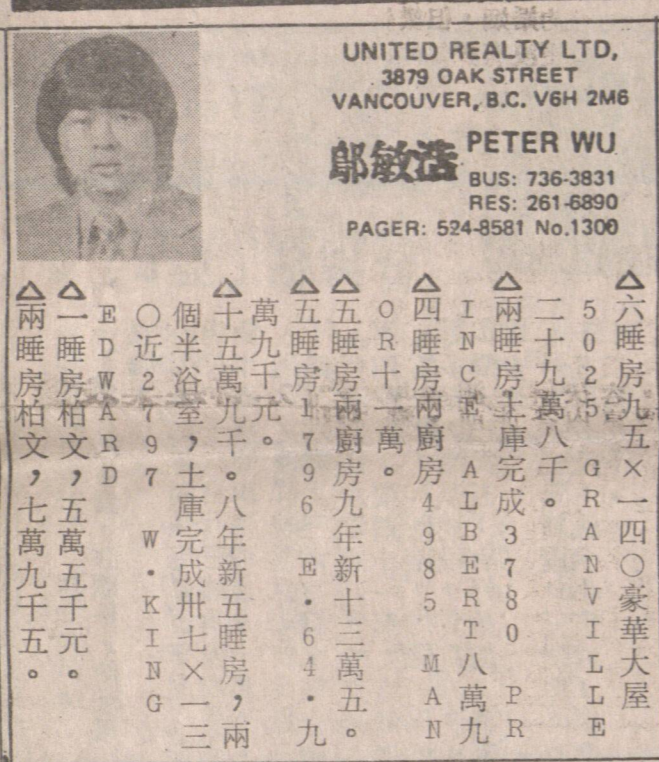 UNITED REALTY LTD,
3879 OAK STREET
VANCOUVER, B.C. V6H 2M6
鄔敏浩 PETER WU
BUS: 736-3831
RES: 261-6890
PAGER: 524-8581 No.1300
△六睡房九五×一四〇豪華大屋
5025 GRANVILLE
二十九萬八千。
△兩睡房土庫完成3780 PR
INCE ALBERT八萬九
△四睡房兩廚房4985 MAN
OR十一萬。
△五睡房兩廚房九年新十三萬五。
△五睡房1796 E·64·九
萬九千元。
△十五萬九千。八年新五睡房，兩
個半浴室，土庫完成卅七×一三
〇近2797 W·KING
EDWARD
△一睡房柏文，五萬五千元。
△兩睡房柏文，七萬九千五。